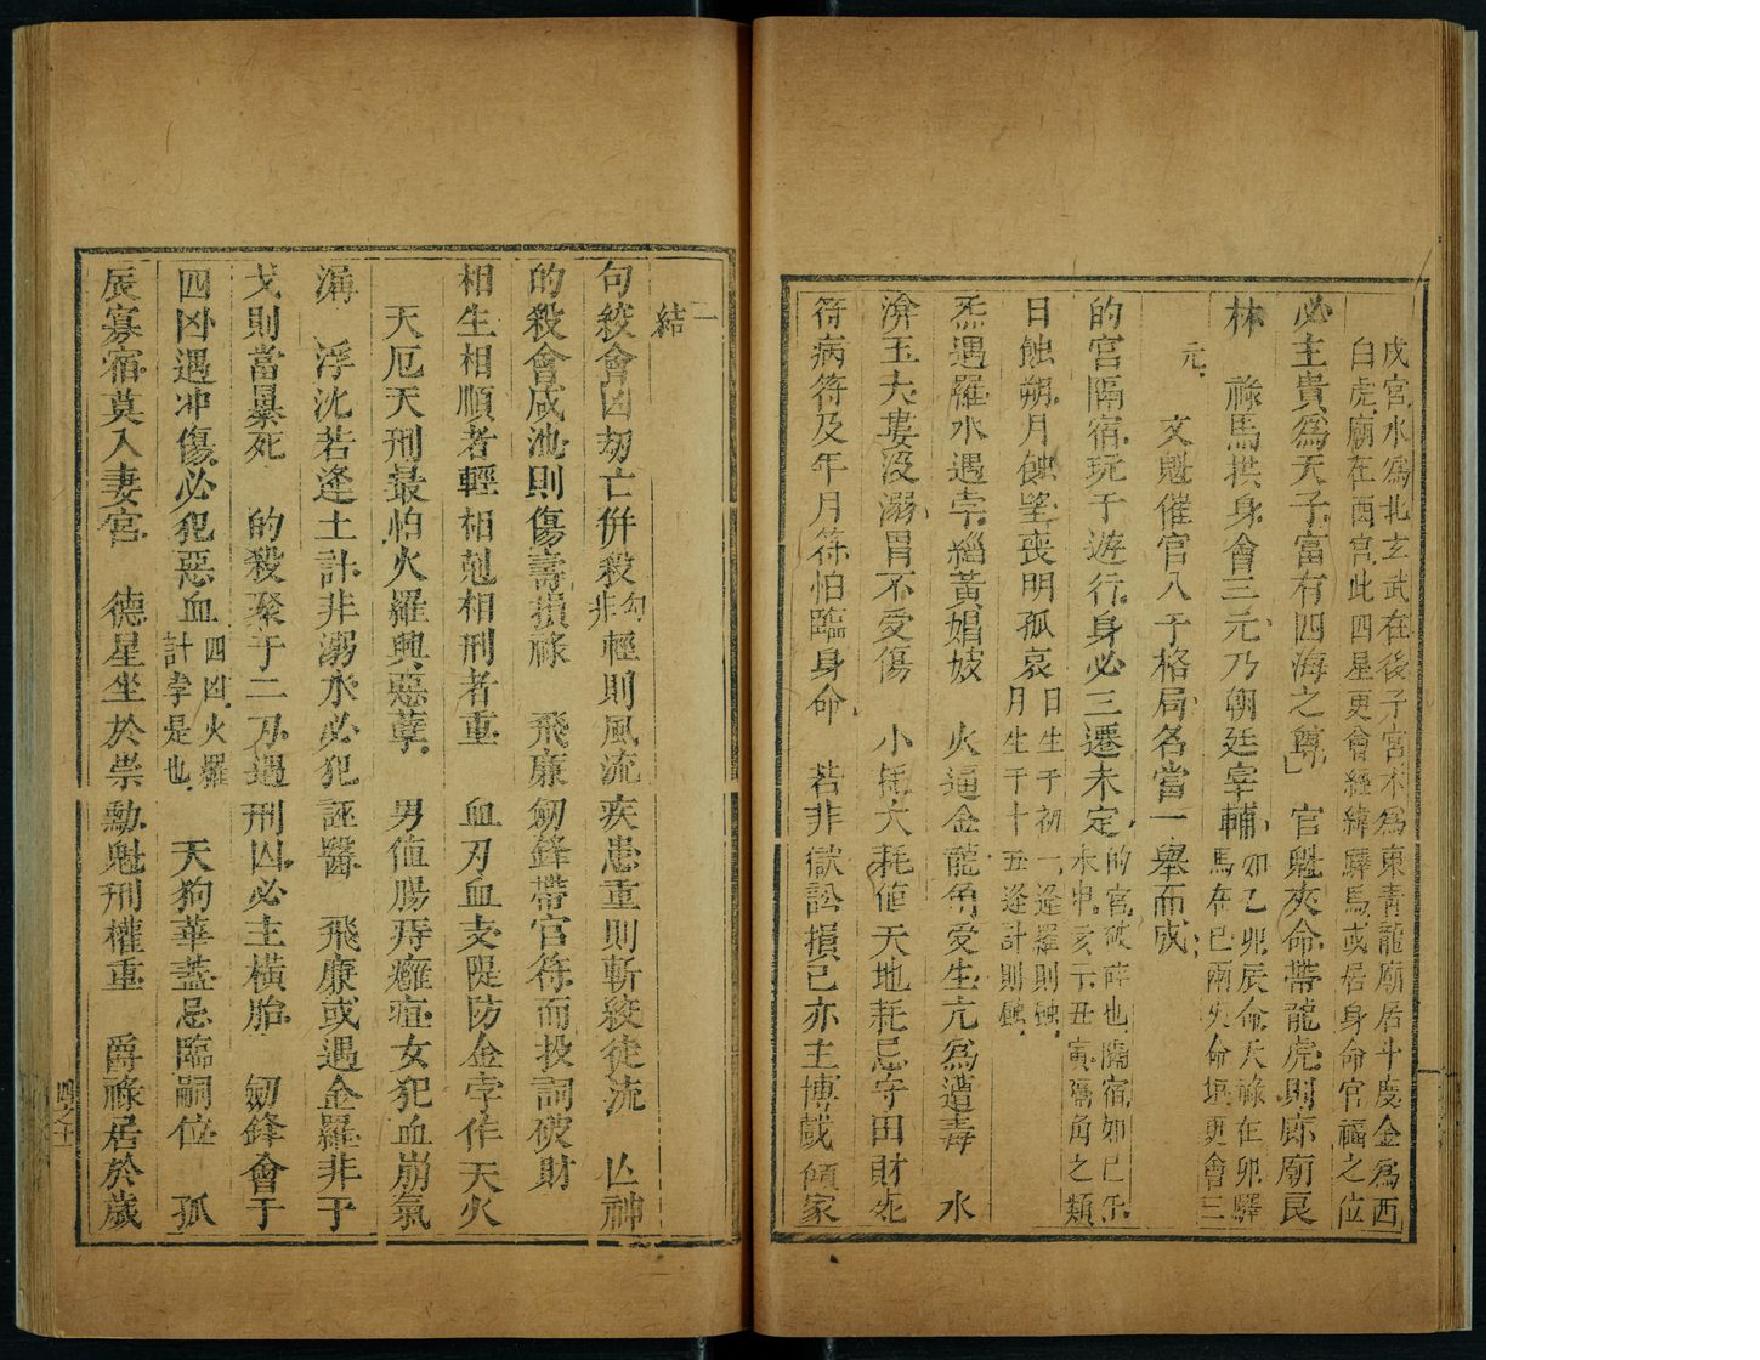 戌宮水爲北玄武在後子宮木爲東青龍廟居斗度金爲西
白虎廟在酉宮此四星更會經緯驛馬或居身命官福之位
必主貴爲天子富有四海之尊 官魁夾命帶龍虎則廊廟艮
林 祿馬拱身會三元乃朝廷宰輔 如乙卯辰命天祿在卯驛
馬在巳兩夾命垣更會三
元
文魁催官入于格局名當一舉而成
的宮隔宿玩于遊行身必三遷未定 的宮破碎也隔宿如巳
水申亥子丑寅 角之類
日蝕朔月蝕望喪明孤哀 日生于初一逢羅則蝕
月生于十五逢計則蝕
炁遇羅水遇孛緇黃娼妓 火逼金龍角愛生亢爲遭毒 水
渰玉犬婁没溺胃不受傷 小耗大耗値天地耗忌守田財死
符病符及年月符怕臨身命 若非獄訟損己亦主博戲傾家
一
結
句絞會凶刼亡併殺 勾
非
輕則風流疾患重則斬絞徒流 亾神
的殺會咸池則傷壽損祿 飛廉劒鋒帶官符而投詞破財
相生相順者輕相尅相刑者重 血刃血支隄防金孛作天火
天厄天刑最怕火羅興惡孽 男値腸痔癰疽女犯血崩氣
滿 浮沈若逢土計非溺水必犯誣醫 飛廉或遇金羅非于
戈則當暴死 的殺聚于二刃遇刑囚必主橫胎 劒鋒會于
四凶遇冲傷必犯惡血 四凶火羅
計孛是也
天狗華蓋忌臨嗣位 孤
辰寡宿莫入妻宮 德星坐於祟勳魁刑權重 爵祿居於歲